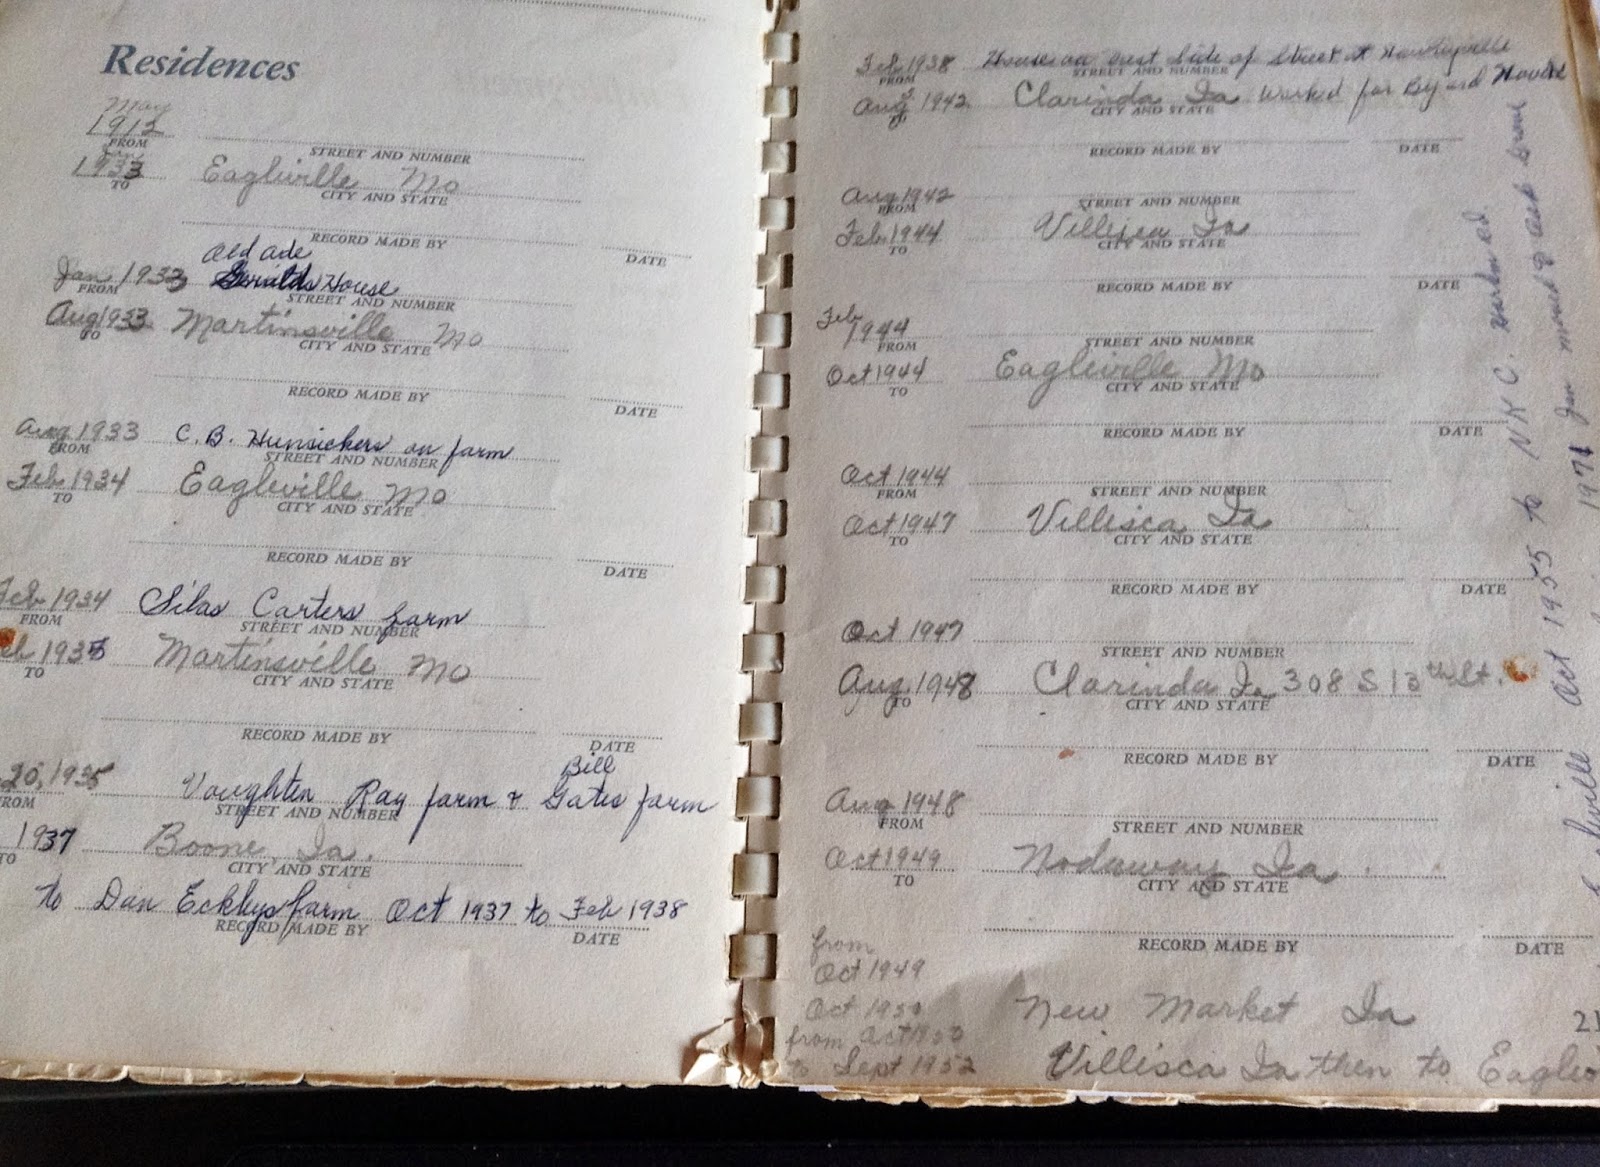 Residences
May
1912
FROM
STREET AND NUMBER
Jan
1933
TO
Eagleville Mo
CITY AND STATE
RECORD MADE BY
DATE
Jan 1933
FROM
House
STREET AND NUMBER
Aug 1933
TO
Martinsville Mo
CITY AND STATE
RECORD MADE BY
DATE
Aug 1933
FROM
C. B. Hunsickers on farm
STREET AND NUMBER
Feb 1934
TO
Eagleville Mo
CITY AND STATE
RECORD MADE BY
DATE
Feb 1934
FROM
Silas Carters farm
STREET AND NUMBER
1935
TO
Martinsville Mo
CITY AND STATE
RECORD MADE BY
DATE
20, 1935
FROM
Vaughten Ray farm & Bill Gates farm
STREET AND NUMBER
1937
TO
Boone, Ia.
CITY AND STATE
to Dan Eckleys farm Oct 1937 to Feb 1938
RECORD MADE BY
DATE
Feb 1938
FROM
House on west side of Street at
STREET AND NUMBER
Aug 1942
TO
Clarinda Ia work'd for
CITY AND STATE
RECORD MADE BY
DATE
Aug 1942
FROM
STREET AND NUMBER
Feb 1944
TO
Villisca Ia
CITY AND STATE
RECORD MADE BY
DATE
Feb
1944
FROM
STREET AND NUMBER
Oct 1944
TO
Eagleville Mo
CITY AND STATE
RECORD MADE BY
DATE
Oct 1944
FROM
STREET AND NUMBER
Oct 1947
TO
Villisca Ia
CITY AND STATE
RECORD MADE BY
DATE
Oct 1947
STREET AND NUMBER
Aug. 1948
TO
Clarinda Ia 308 S 13th St.
CITY AND STATE
RECORD MADE BY
DATE
Aug 1948
FROM
STREET AND NUMBER
Oct 1949
TO
Nodaway Ia
CITY AND STATE
RECORD MADE BY
DATE
from
Oct 1949
Oct 1950
New Market Ia
from Oct 1950
to Sept 1952
Villisca Ia then to
21
Oct 1955 to N.K.C.
1971 Jan moved